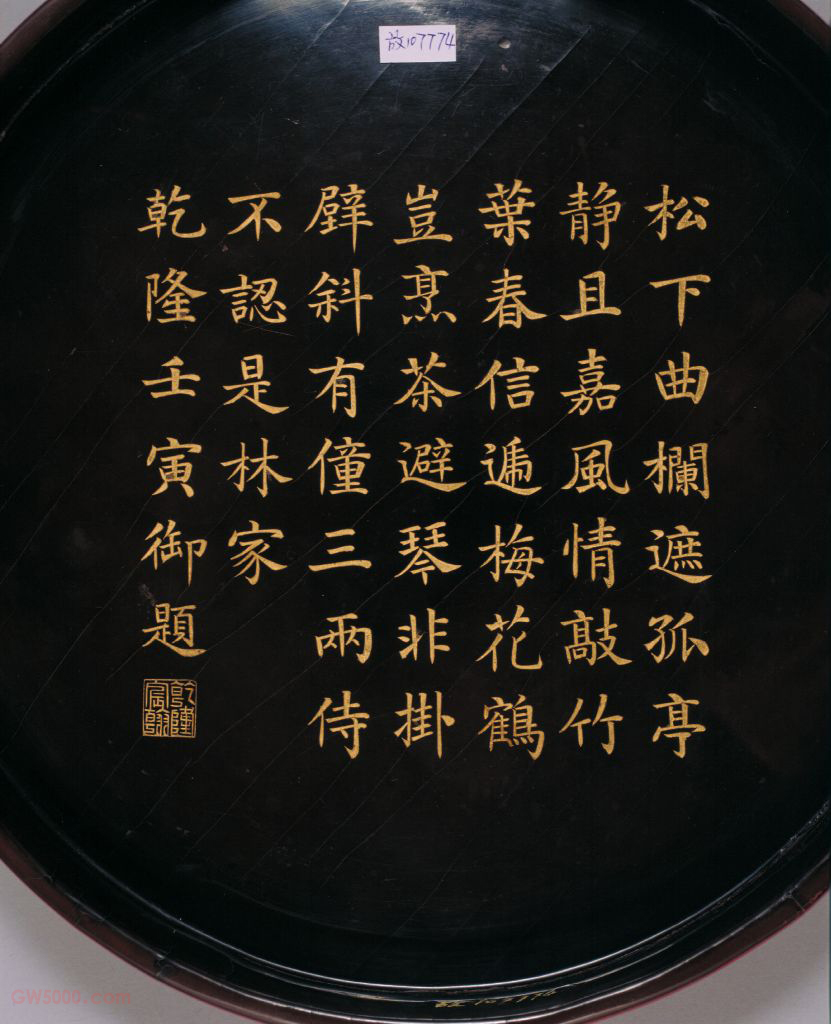 放107774
松下曲欄遮孤亭
静且嘉風情敲竹
葉春信遍梅花鶴
豈烹茶避琴非掛
壁斜有僮三兩侍
不認是林家
乾隆壬寅御題
乾隆宸翰
GW5000.com